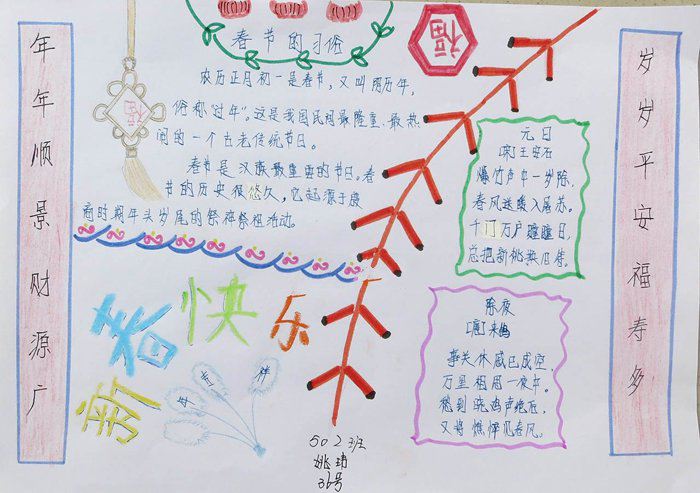 年年顺景财源广
春节的习俗
农历正月初一是春节，又叫阴历年，
俗称"过年"。这是我国民间最隆重、最热
闹的一个古老传统节日。
春节是汉族最重要的节日。春
节的历史很悠久，它起源于殷
商时期年头岁尾的祭神祭祖活动。
福
福
新春快乐
元日
[宋]王安石
爆竹声中一岁除，
春风送暖入屠苏。
千门万户瞳瞳日，
总把新桃换旧符。
除夜
[唐]来鹄
事关休戚已成空，
万里相思一夜中。
愁到晓鸡声绝后，
又将憔悴见春风。
502班
姚玮
36号
岁岁平安福寿多